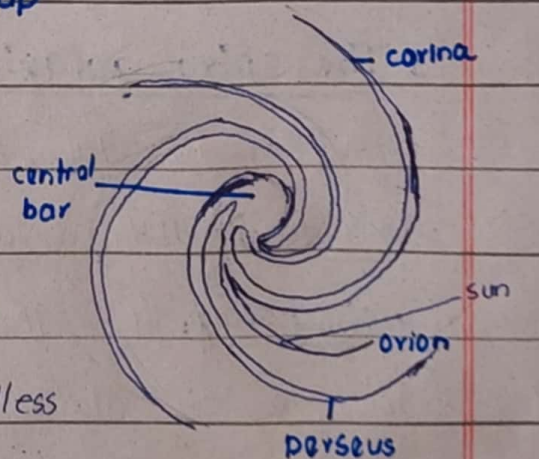 up
carina
central
bar
sun
orion
less
perseus